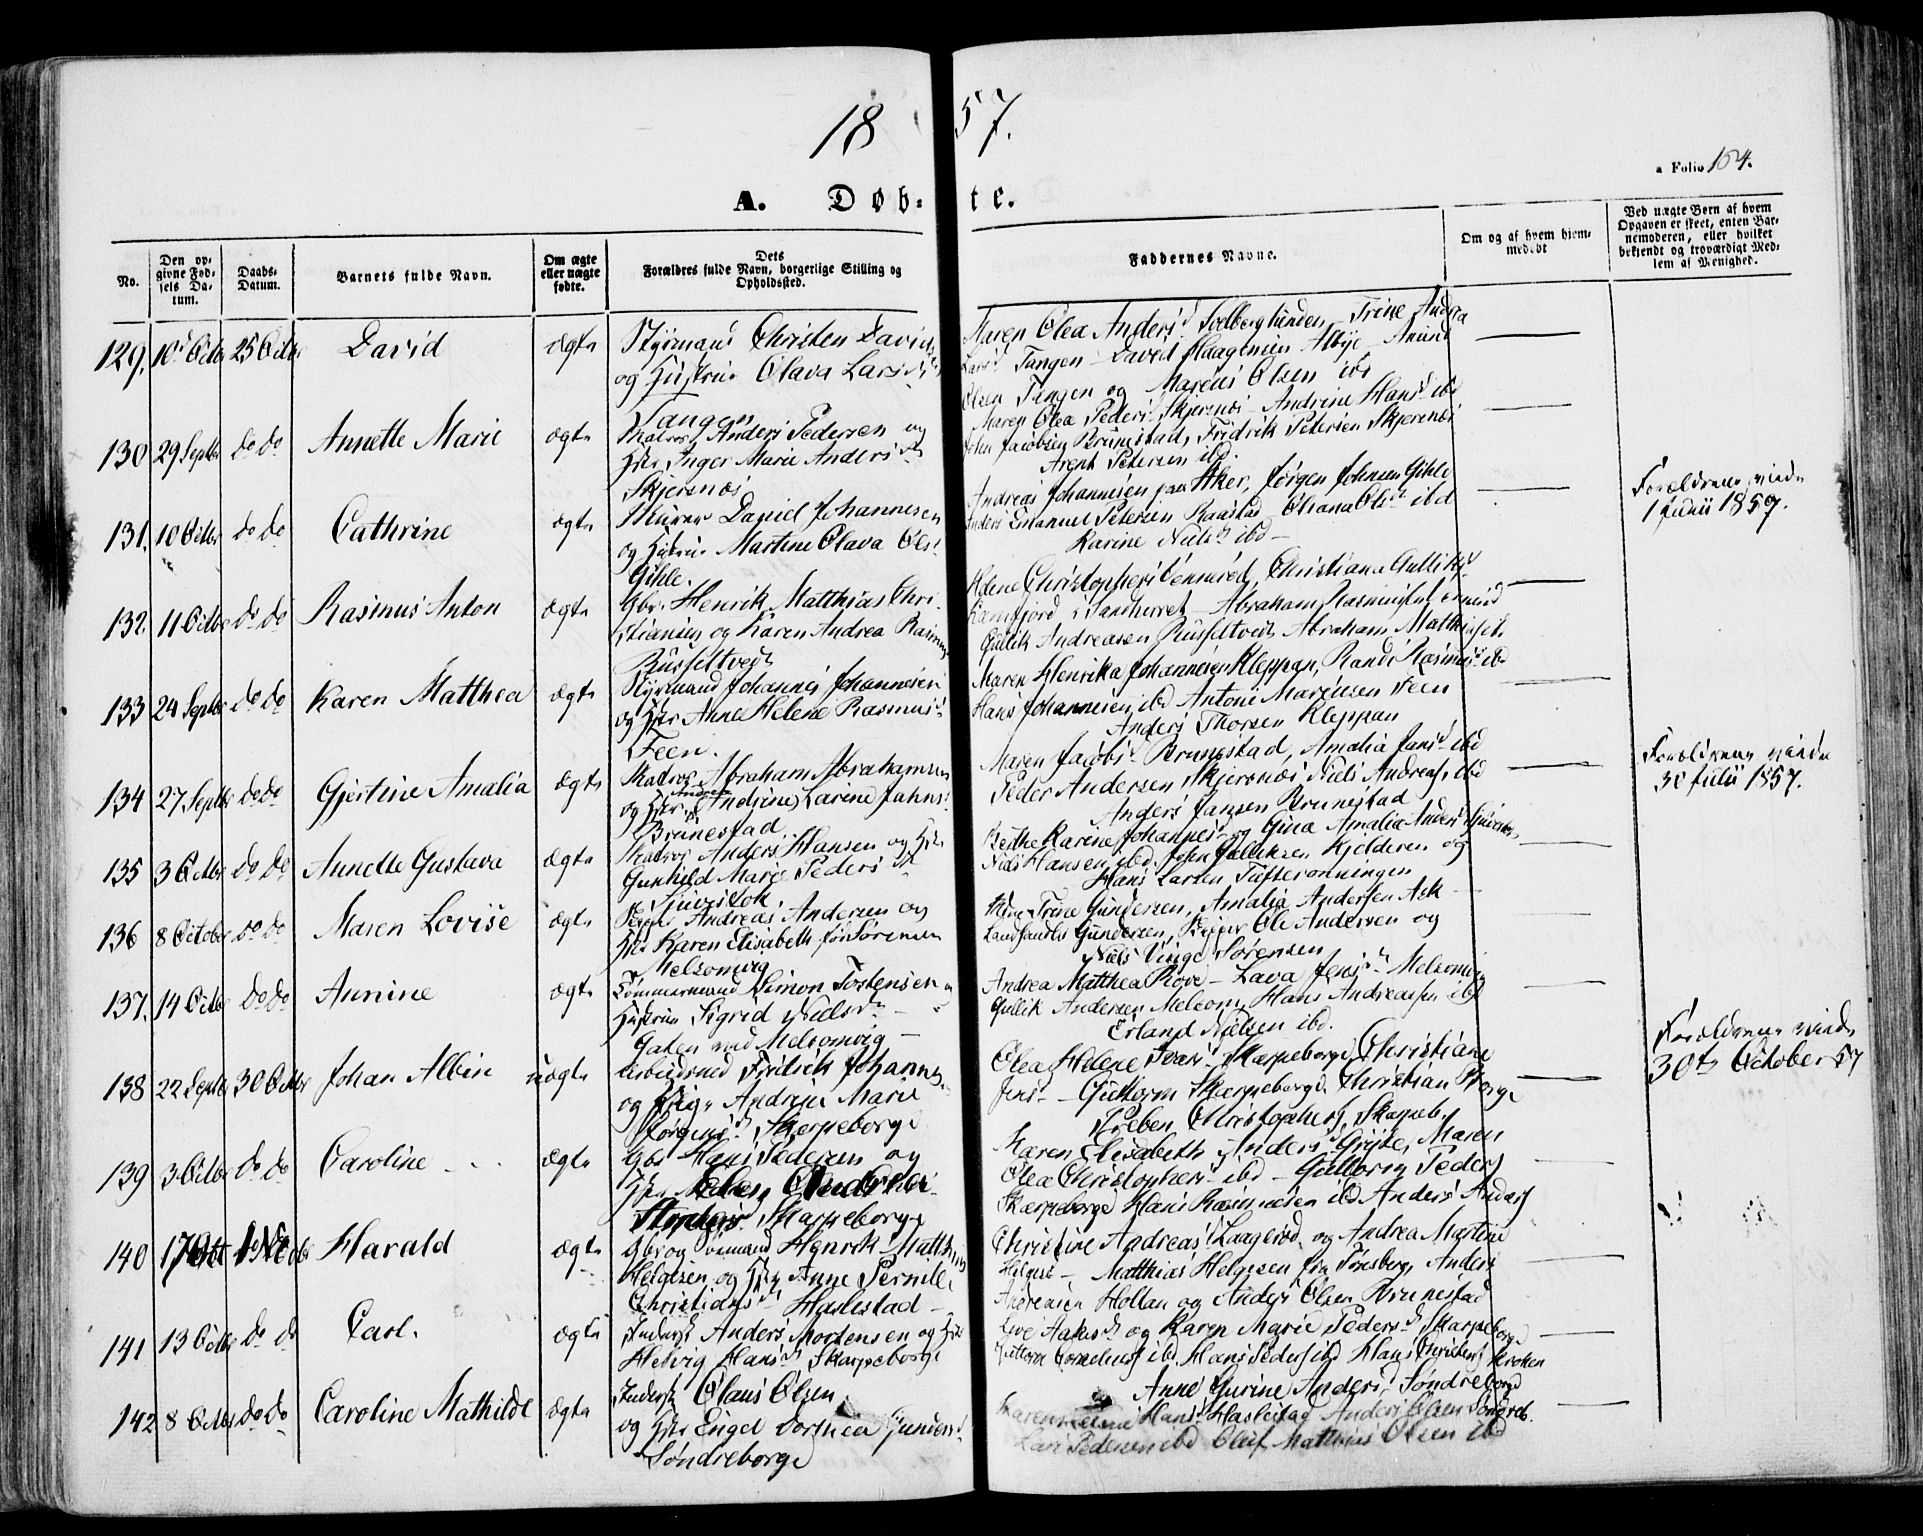 18 57.
a Folio 154.
A. Døb- te.
No.
Den op-
givne Fød-
sels Da-
tum.
Daabs-
Datum.
Barnets fulde Navn.
Om ægte
eller uægte
fødte.
Dets
Forældres fulde Navn, borgerlige Stilling og
Opholdssted.
Faddernes Navne.
Om og af hvem hjem-
medøbt
Ved uægte Børn af hvem
Opgaven er skeet, enten Bar-
nemoderen, eller hvilket
bekjendt og troværdigt Med-
lem af Menighed.
129. 10 Octbr 25 Octbr David ægte
Styrmand Christen Davids
og Hustrue Olava Larsd.
Tangen
Maren Olea Andersd. Solberg Trine Andrea
Larsd. Tangen - David Haagensen Anund
Olsen Tangen og Marcus Olsen ibd
130 29 Septbr do do Annette Marie ægte
Matros Anders Pedersen og
Hstr Inger Marie Andersd.
Skjersnæs
Maren Olea Pedersd. Skjersnæs - Andrine Hansd. ibd
John Jacobsen Brunestad, Fridrik Petersen Skjersnæs
Arent Petersen ibd.
131. 10 Octbr do do Cathrine ægte
Murer Daniel Johannesen
og Hustrue Martine Olava Ols
Gihle.
Andreas Johannesen paa Aker, Jørgen Johnsen Gihle
Anders Emanuel Petersen Raastad, Oliana Olsd. ibd
Karine Nielsd. ibd -
Forældrene viede
1 Junii 1857.
132. 11 Octbr do do Rasmus Anton ægte
Gbr. Henrik Matthias Chri-
stiansen og Karen Andrea Rasmus
Russeltvedt
Helene Christophersd. Christiana Gulliksd.
i Sandherret - Abraham
Gullik Andreasen Russeltvedt Abraham
133 24 Septbr do do Karen Matthea ægte
Styrmand Johannes Johannesen
og Hstr Anne Helene Rasmus
Feen.
Maren Henrika Johannesen Kleppan, Randi Rasmusd. ibd
Hans Johannesen ibd Antoni Marensen Feen
Anders Thorsen Kleppan
134 27 Septbr do do Gjertine Amalia ægte
Matros Abraham Abrahamsen
og Hstr. Andrine Larine Jahns
Andrea
Brunestad.
Maren Jacobsd. Brunestad, Amalia Jansd. ibd
Peder Andersen Skjersnæs Niels Andreas. ibd
Anders Jansen Brunestad
Forældrene viede
30 Julii 1857.
135 3 Octbr do do Annette Gustava ægte
Matros Anders Hansen og Hstr
Gunhild Marie Pedersd.
Berthe Karine Johannesd. og Gina Amalia Andersd.
Niels Hansen ibd. John Gulliksen Kjelderen og
Hans Larsen Tufteronningen
136 8 October do do Maren Lovise ægte
Andreas Andersen og
Hstr Karen Elisabeth født Sørensen
Melsomvig
Trine Gundersen, Amalia Andersen Ask
Gundersen, Skipper Ole Andersen og
Niels Vinge Sørensen
137. 14 Octbr do do Annine ægte
Tømmermand Simon Torstensen og
Hustrue Sigrid Nielsd. -
Gaten ved Melsomvig -
Andrea Matthea Rove - Lava Jensd. Melsomvig
Gullik Andersen Melsom, Hans Andreassen ibd
Erland Nielsen ibd.
138 22 Septbr 30 Octbr Johan Albin uægte
Fredrik Johannes.
og Pige Andrine Marie
Jørgensd. Skarpeborge
Olea Helene Ivarsd. Skarpeborge, Christiane
Jensd. - Guttorm Skarpeborge Christian Borge
Preben Christophers. Skarpeb.
Forældrene viede
30te October 57
139 3 Octbr do do Caroline ægte
Gbr Hans Pedersen og
Skarpeborge
Karen Elisabeth Andersd. Gryte, Maren
Olea Christophersd. ibd - Guttorm Peders
Skarpeborge Hans Rasmusen ibd Anders Anders
140 17 Harald ægte
Gbr og Henrik Matthias
Helgesen og Hstr Anne Pernille
Christiansd. Haslestad -
Christine Andreasd. Laagerød og Andrea Martine
Helgesd. - Matthias Helgesen fra Tønsberg Anders
Andersen Holtan og Anders Olsen Brunestad
141 13 Octbr do do Carl. ægte
Inderst Anders Mortensen og Hstr
Hedvig Hansd. Skarpeborge
og Karen Marie Pedersd. Skarpeborge
Guttorm Cornelius. ibd Hans Peders ibd Hans Christens Kroken
142 8 Octbr do do Caroline Mathilde ægte
Inderst Olaus Olsen
og Hstr Engel Dorthea Gunders.
Søndreborge
Anne Gurine Andersd. Søndreborge
Hansd. Haslestad Anders Olsen Søndreb.
Lars Pedersen ibd Oluf Matthias Olsen ibd